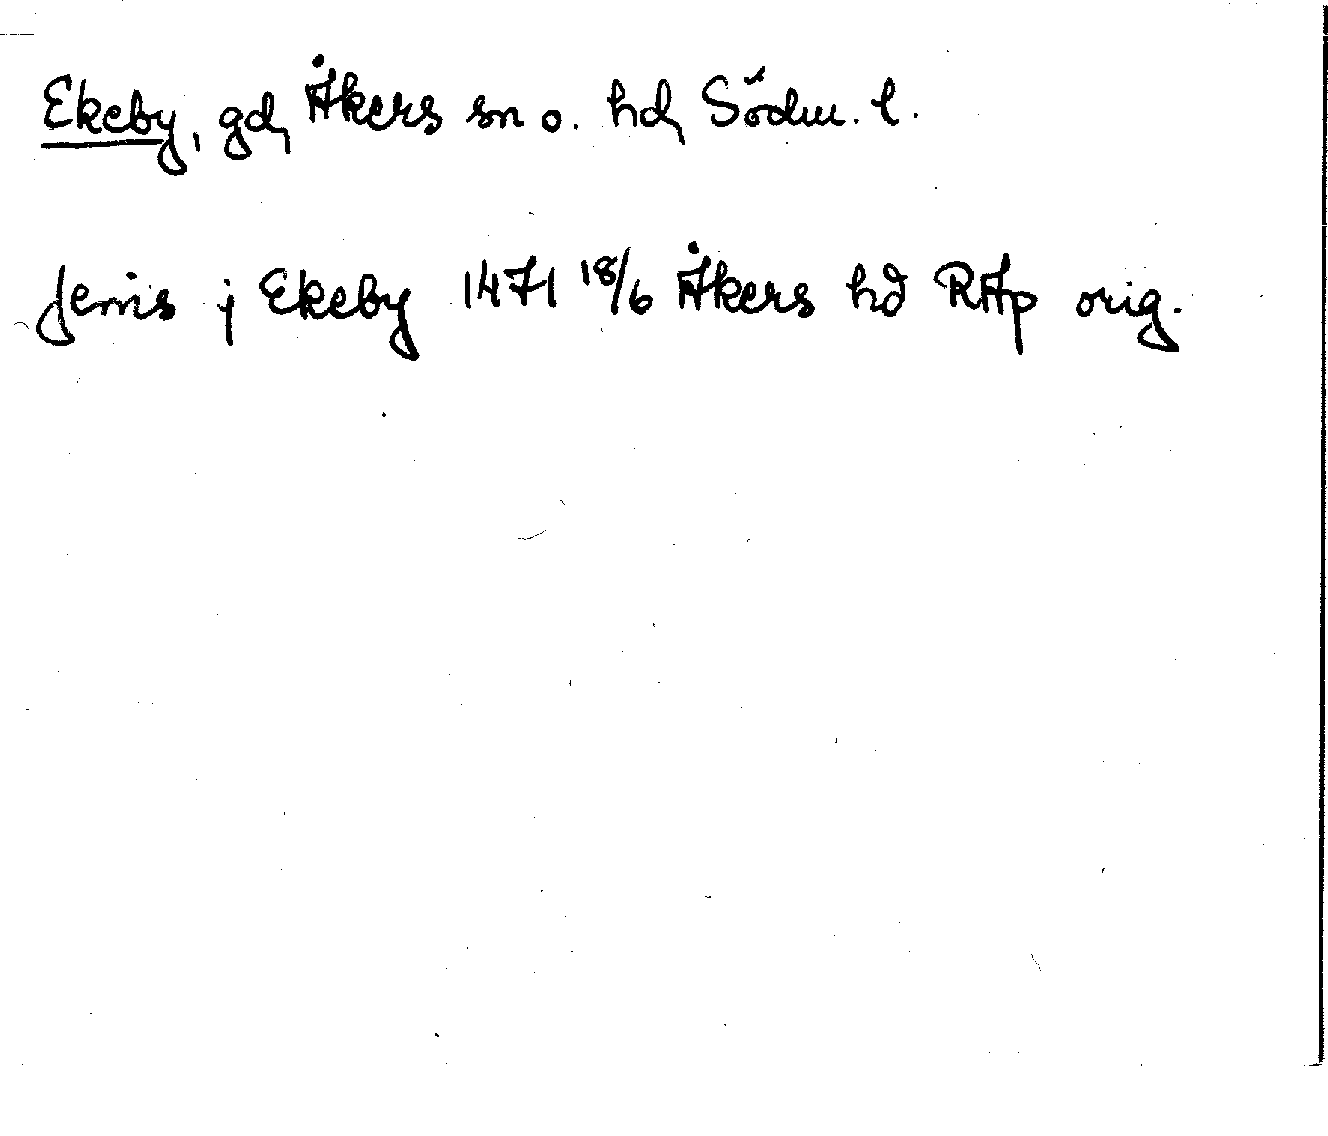 Ekeby, gd, Åkers sn o. hd, Södm. l.
Jenis j Ekeby 1471 18/6 Åkers hd RAp orig.